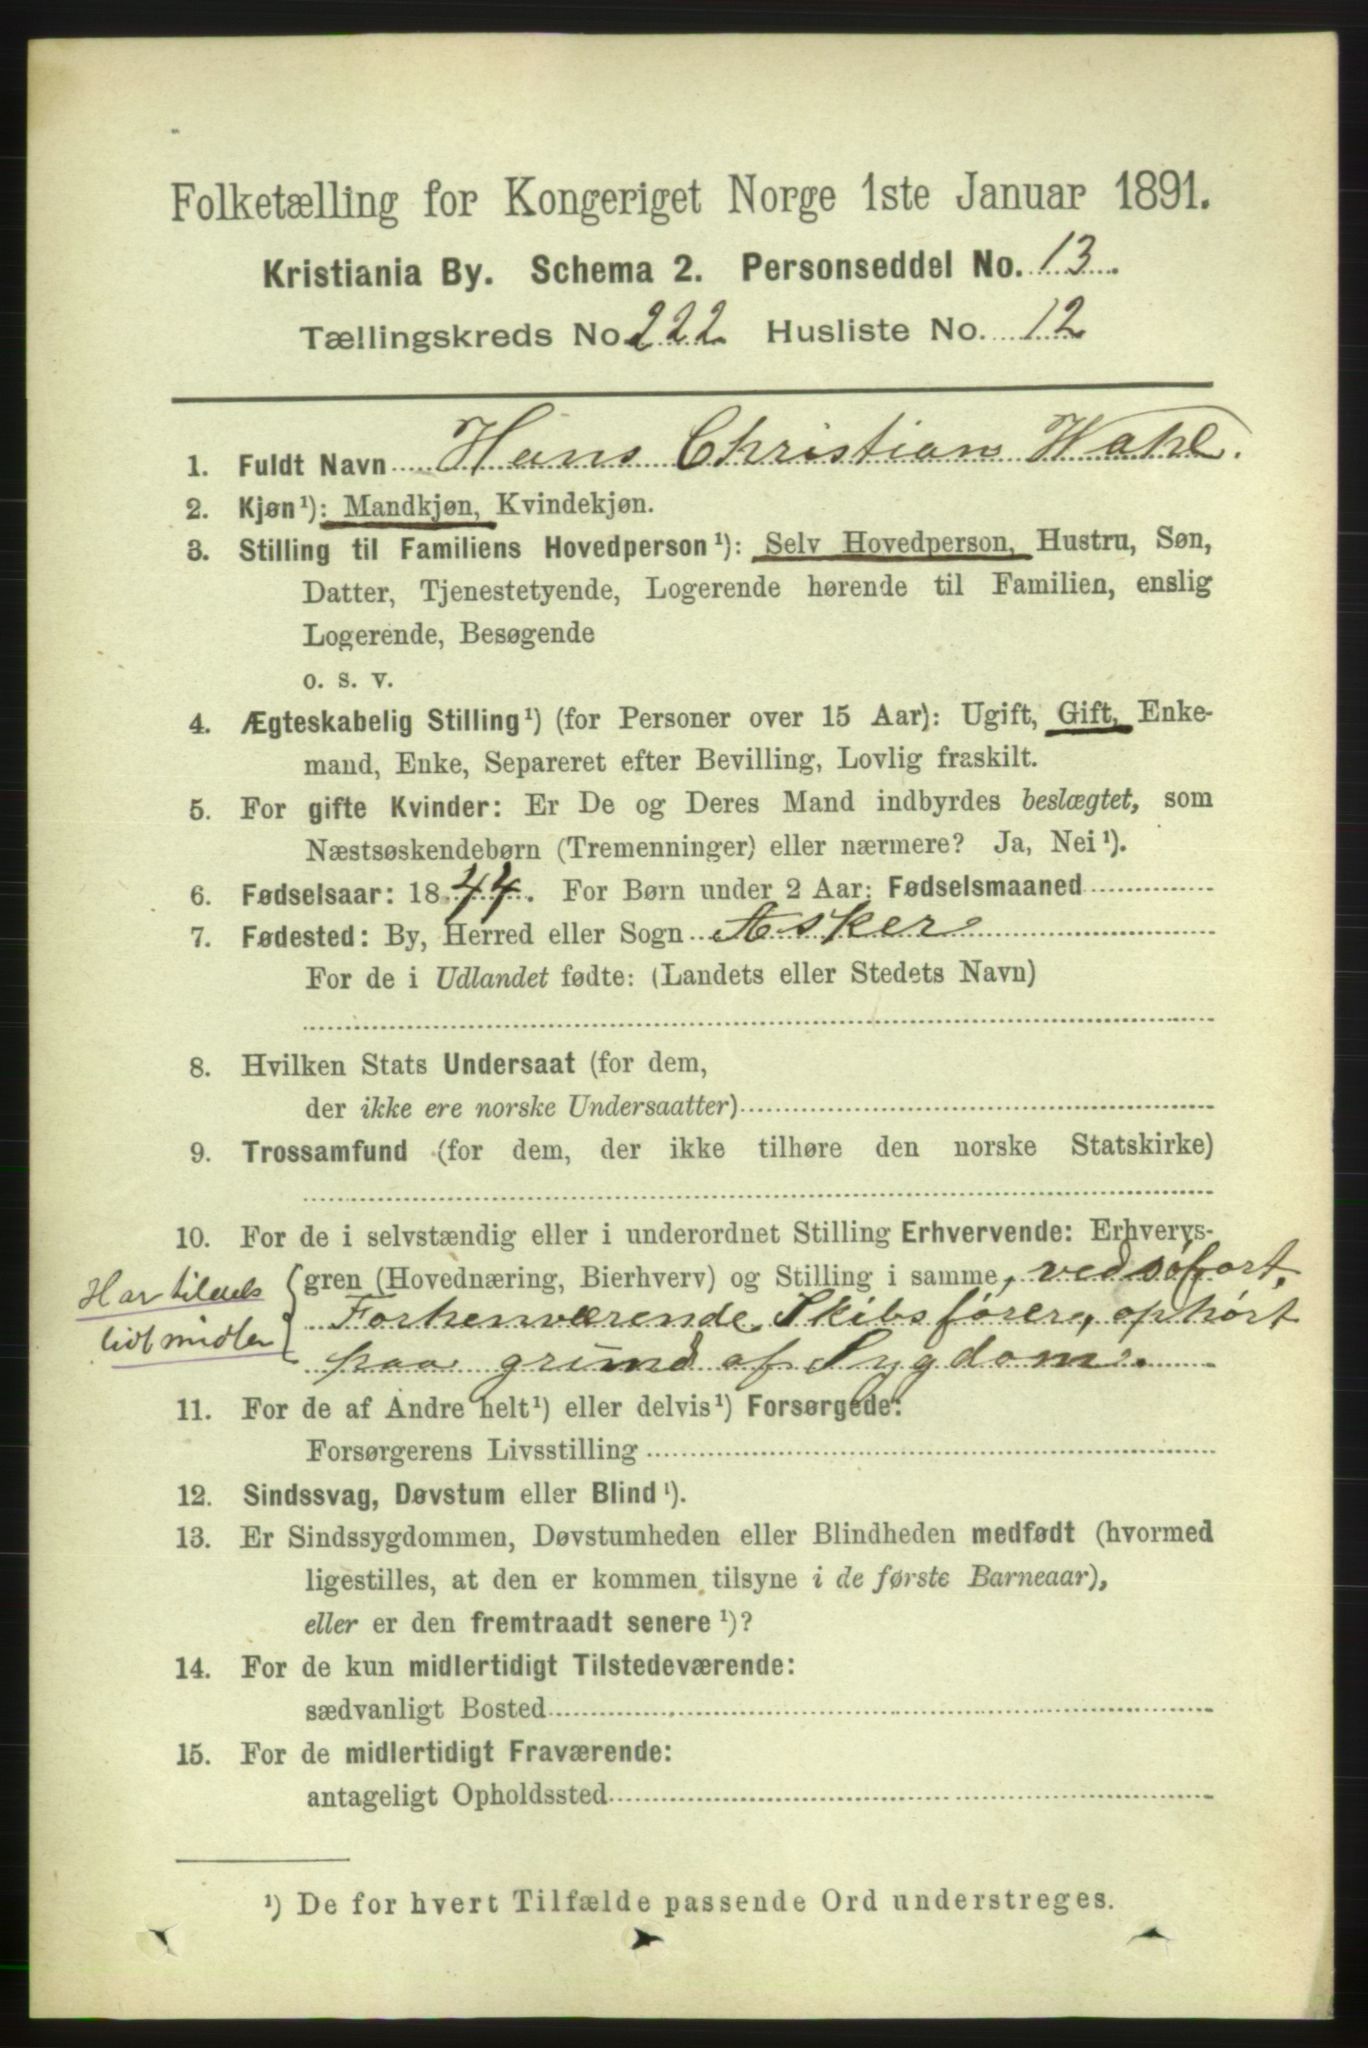 Folketælling for Kongeriget Norge 1ste Januar 1891.
Kristiania By. Schema 2. Personseddel No. 13.
Tællingskreds No. 222 Husliste No. 12
1. Fuldt Navn Hans Christian Wahl.
2. Kjøn¹): Mandkjøn, Kvindekjøn.
3. Stilling til Familiens Hovedperson¹): Selv Hovedperson, Hustru, Søn,
Datter, Tjenestetyende, Logerende hørende til Familien, enslig
Logerende, Besøgende
o. s. v.
4. Ægteskabelig Stilling¹) (for Personer over 15 Aar): Ugift, Gift, Enke-
mand, Enke, Separeret efter Bevilling, Lovlig fraskilt.
5. For gifte Kvinder: Er De og Deres Mand indbyrdes beslægtet, som
Næstsøskendebørn (Tremenninger) eller nærmere? Ja, Nei¹).
6. Fødselsaar: 1844. For Børn under 2 Aar: Fødselsmaaned
7. Fødested: By, Herred eller Sogn Asker
For de i Udlandet fødte: (Landets eller Stedets Navn)
8. Hvilken Stats Undersaat (for dem,
der ikke ere norske Undersaatter)
9. Trossamfund (for dem, der ikke tilhøre den norske Statskirke)
10. For de i selvstændig eller i underordnet Stilling Erhvervende: Erhvervs-
gren (Hovednæring, Bierhverv) og Stilling i samme, ved søfart,
Har tildels
Forhenværende Skibsfører, ophørt
lidt midler
paa grund af Sygdom.
11. For de af Andre helt¹) eller delvis¹) Forsørgede:
Forsørgerens Livsstilling
12. Sindssvag, Døvstum eller Blind¹).
13. Er Sindssygdommen, Døvstumheden eller Blindheden medfødt (hvormed
ligestilles, at den er kommen tilsyne i de første Barneaar),
eller er den fremtraadt senere¹)?
14. For de kun midlertidigt Tilstedeværende:
sædvanligt Bosted
15. For de midlertidigt Fraværende:
antageligt Opholdssted
¹) De for hvert Tilfælde passende Ord understreges.